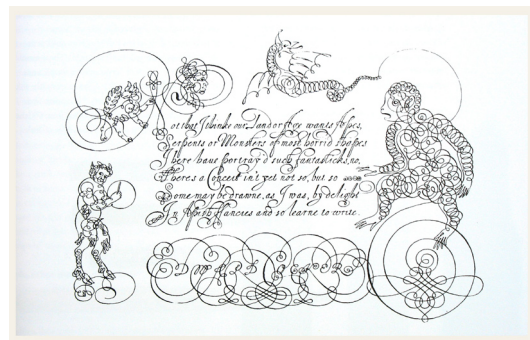 Not that I thinke our Land or wants Apes,
Serpents or Monsters of most horrid shapes
I here haue portray'd such fantasticks, no,
Theres a Conceit in't, yet not so, but so
Some may be drawne, as I was, by delight
In Apish Fancies and so learne to write.
EDWARD